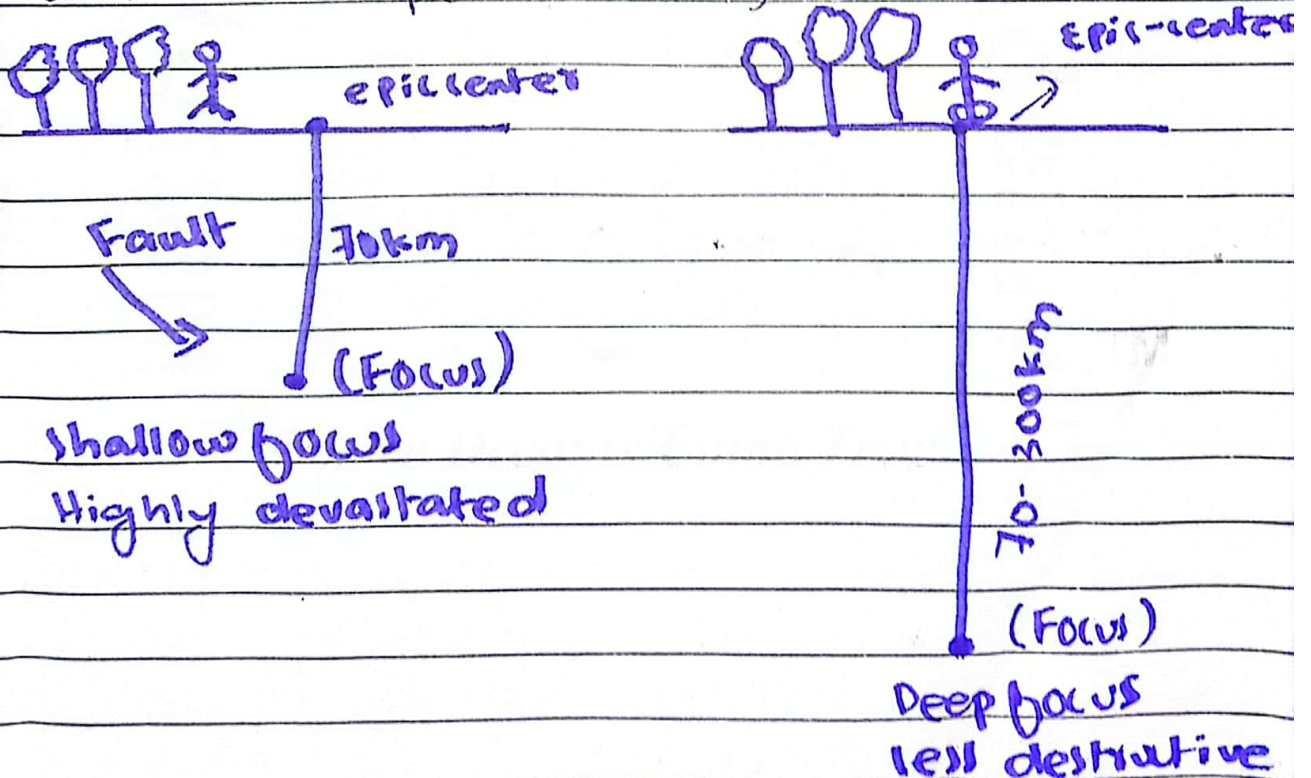 epiccenter
Fault
70km
(Focus)
shallow focus
Highly devastated
Epic-center
70-300km
(Focus)
Deep focus
less destrutive